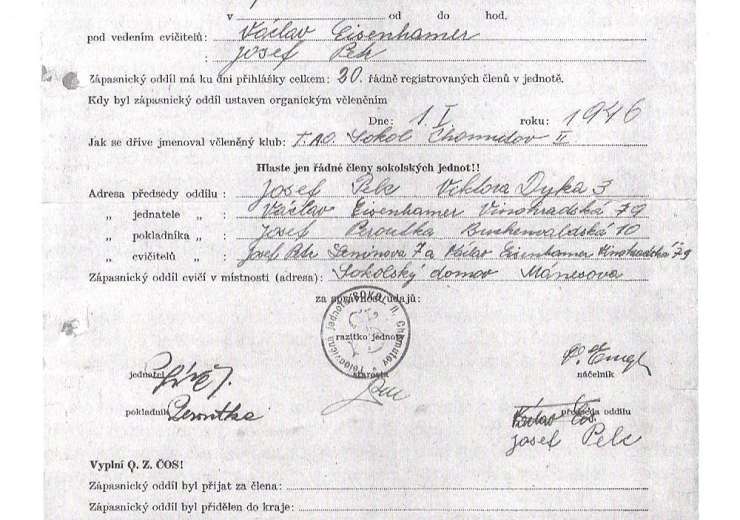 v od do hod,
pod vedením cvičitelů: Václav Eisenhamer
Josef Petr
Zápasnický oddíl má ku dni přihlášky celkem: 30. řádně registrovaných členů v jednotě.
Kdy byl zápasnický oddíl ustaven organickým včleněním
Dne: 1. I. roku: 1946
Jak se dříve jmenoval včleněný klub: Sokol Chomutov II
Hlaste jen řádné členy sokolských jednot!!
Adresa předsedy oddílu : Josef Pelc Viktora Dyka 3
„ jednatele „ : Václav Eisenhamer Vinohradská 79
„ pokladníka „ : Josef Peroutka Buchenwaldská 10
„ cvičitelů „ : Josef Petr Leninova 7 a Václav Eisenhamer Vinohradská 79
Zápasnický oddíl cvičí v místnosti (adresa): Sokolský domov Mánesova
za správnost údajů:
Tělocvičná jednota SOKOL II. Chomutov
razítko jednoty
jednatel
starosta
náčelník
pokladník Peroutka
předseda oddílu
Josef Pelc
Vyplní O. Z. ČOS!
Zápasnický oddíl byl přijat za člena:
Zápasnický oddíl byl přidělen do kraje: